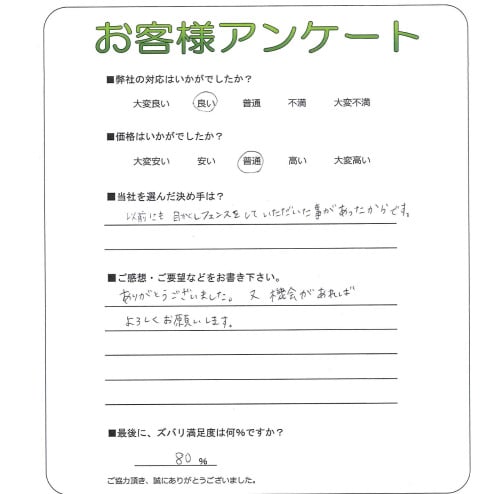 お客様アンケート
■弊社の対応はいかがでしたか？
大変良い 良い 普通 不満 大変不満
■価格はいかがでしたか？
大変安い 安い 普通 高い 大変高い
■当社を選んだ決め手は？
以前にも目かくしフェンスをしていただいた事があったからです。
■ご感想・ご要望などをお書き下さい。
ありがとうございました。又機会があれば
よろしくお願いします。
■最後に、ズバリ満足度は何％ですか？
80 %
ご協力頂き、誠にありがとうございました。